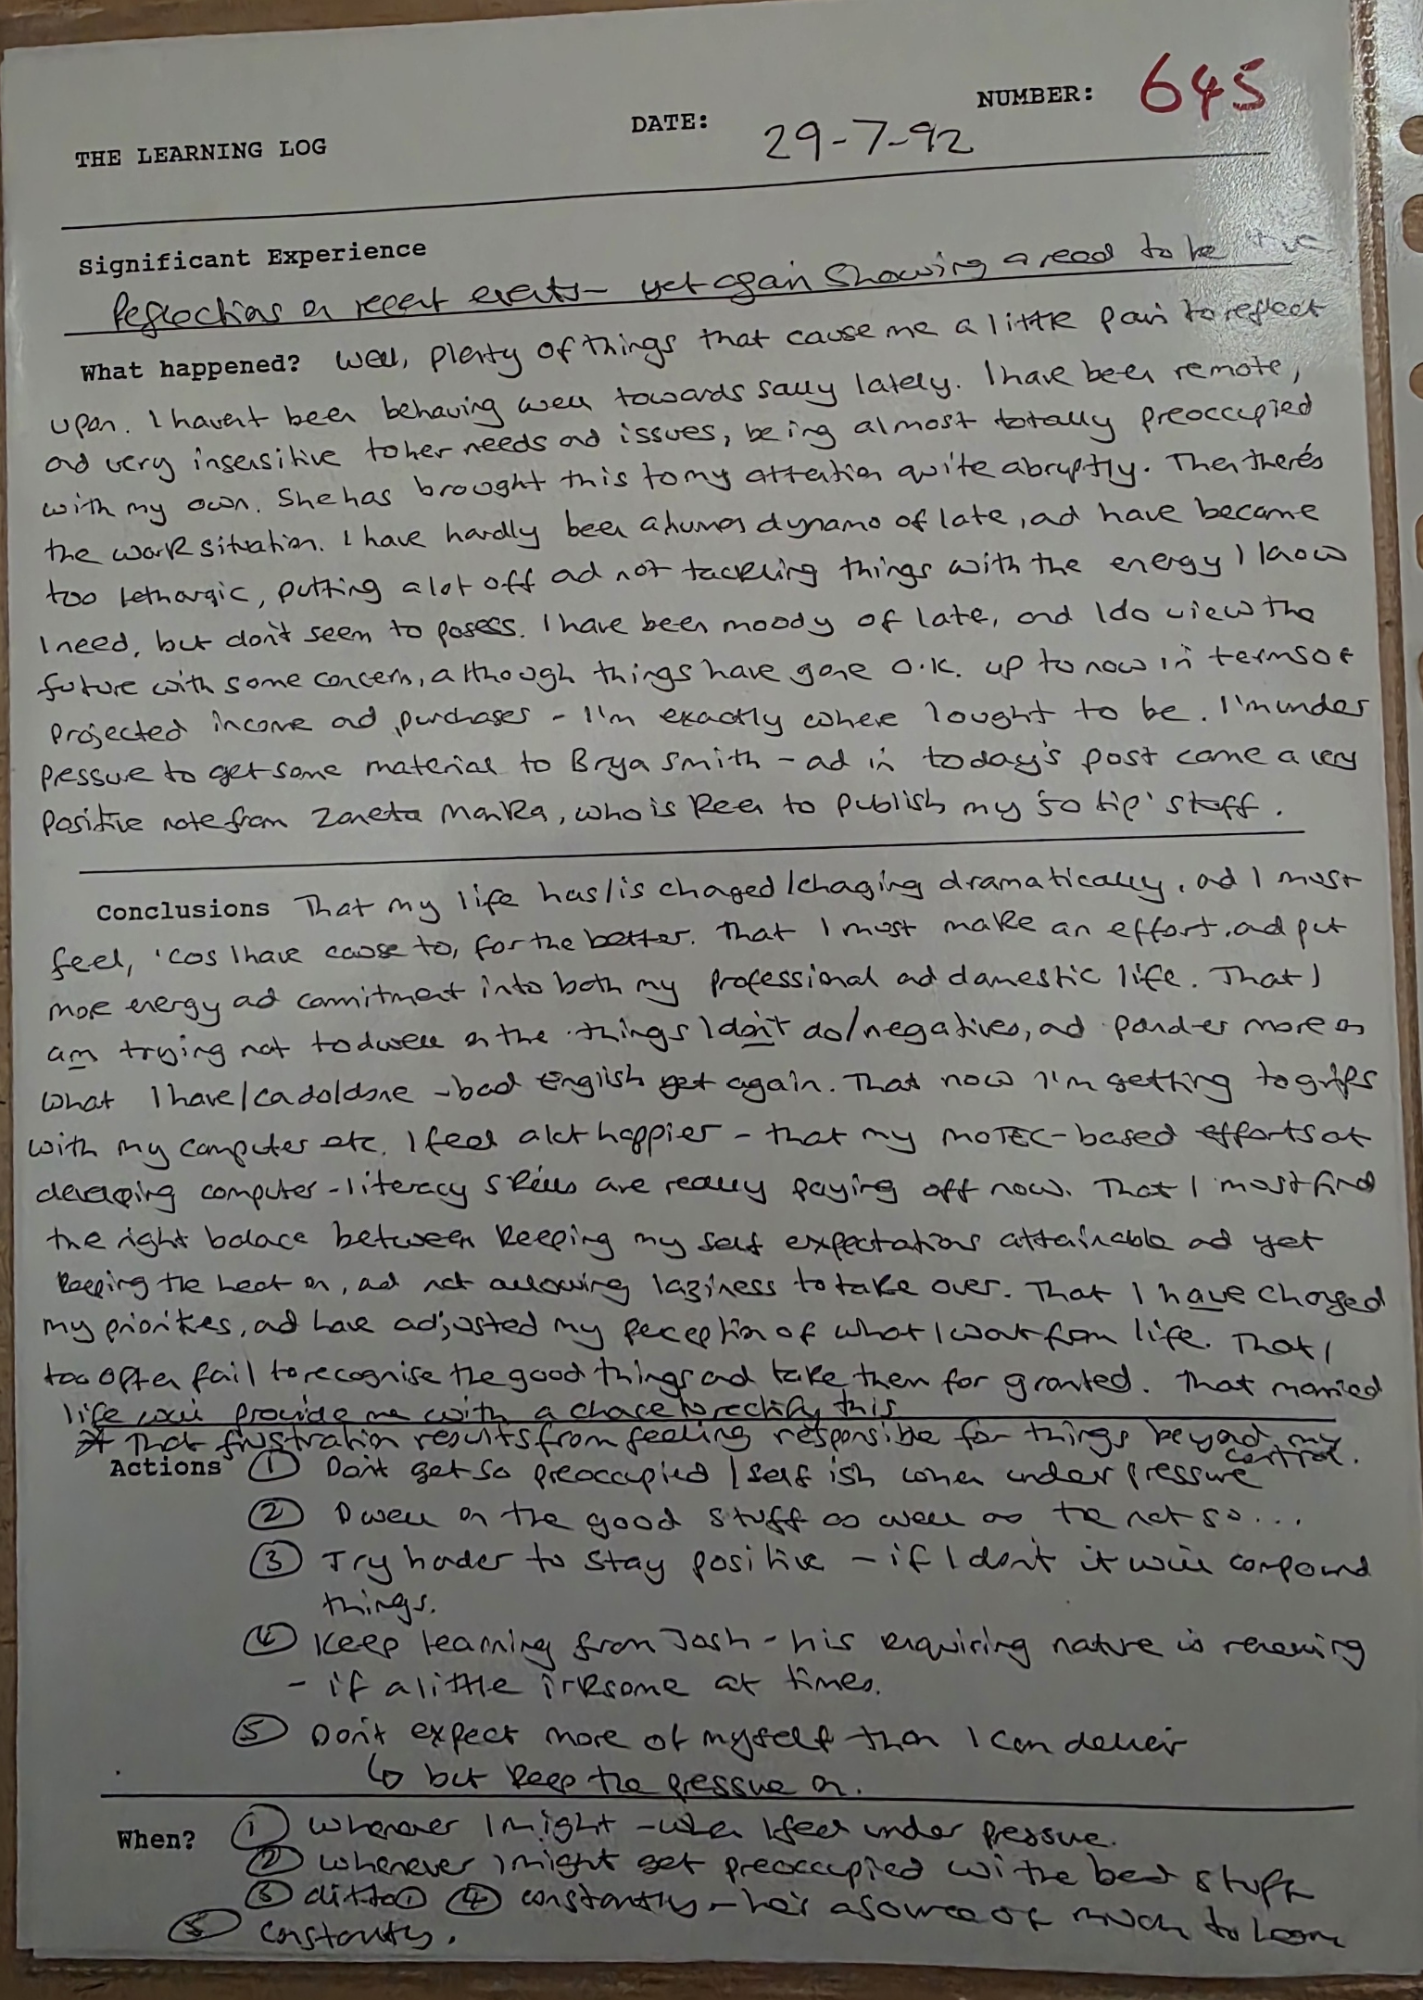 NUMBER: 645
THE LEARNING LOG DATE: 29-7-92
Significant Experience
Reflections on recent events - yet again showing a need to be +ve
What happened? Well, plenty of things that cause me a little pain to reflect
upon. I haven't been behaving well towards Sally lately. I have been remote,
and very insensitive to her needs and issues, being almost totally preoccupied
with my own. She has brought this to my attention quite abruptly. Then there's
the work situation. I have hardly been a human dynamo of late, and have become
too lethargic, putting a lot off and not tackling things with the energy I know
I need, but don't seem to posess. I have been moody of late, and I do view the
future with some concern, although things have gone O.K. up to now in terms of
projected income and purchases - I'm exactly where I ought to be. I'm under
pressure to get some material to Bryan Smith - and in today's post came a very
positive note from Zaneta Manka, who is keen to publish my '50 tip' stuff.
Conclusions That my life has/is changed/changing dramatically, and I must
feel, 'cos I have cause to, for the better. That I must make an effort, and put
more energy and commitment into both my professional and domestic life. That I
am trying not to dwell on the things I don't do/negatives, and ponder more on
what I have/can do/done - bad English yet again. That now I'm getting to grips
with my computer etc. I feel a lot happier - that my MOTEC-based efforts at
developing computer-literacy skills are really paying off now. That I must find
the right balance between keeping my self expectations attainable and yet
keeping the heat on, and not allowing laziness to take over. That I have changed
my priorities, and have adjusted my perception of what I want from life. That I
too often fail to recognise the good things and take them for granted. That married
life will provide me with a chance to rectify this
* That frustration results from feeling responsible for things beyond my
control.
Actions ① Don't get so preoccupied/selfish when under pressure
② Dwell on the good stuff as well as the not so...
③ Try harder to stay positive - if I don't it will compound
things.
④ Keep learning from Josh - his enquiring nature is renewing
- if a little irksome at times.
⑤ Don't expect more of myself than I can deliver
↳ but keep the pressure on.
When? ① Whenever I might - when I feel under pressure.
② Whenever I might get preoccupied wi the bad stuff
③ ditto ① ④ constantly - he's a source of much to learn
⑤ constantly.